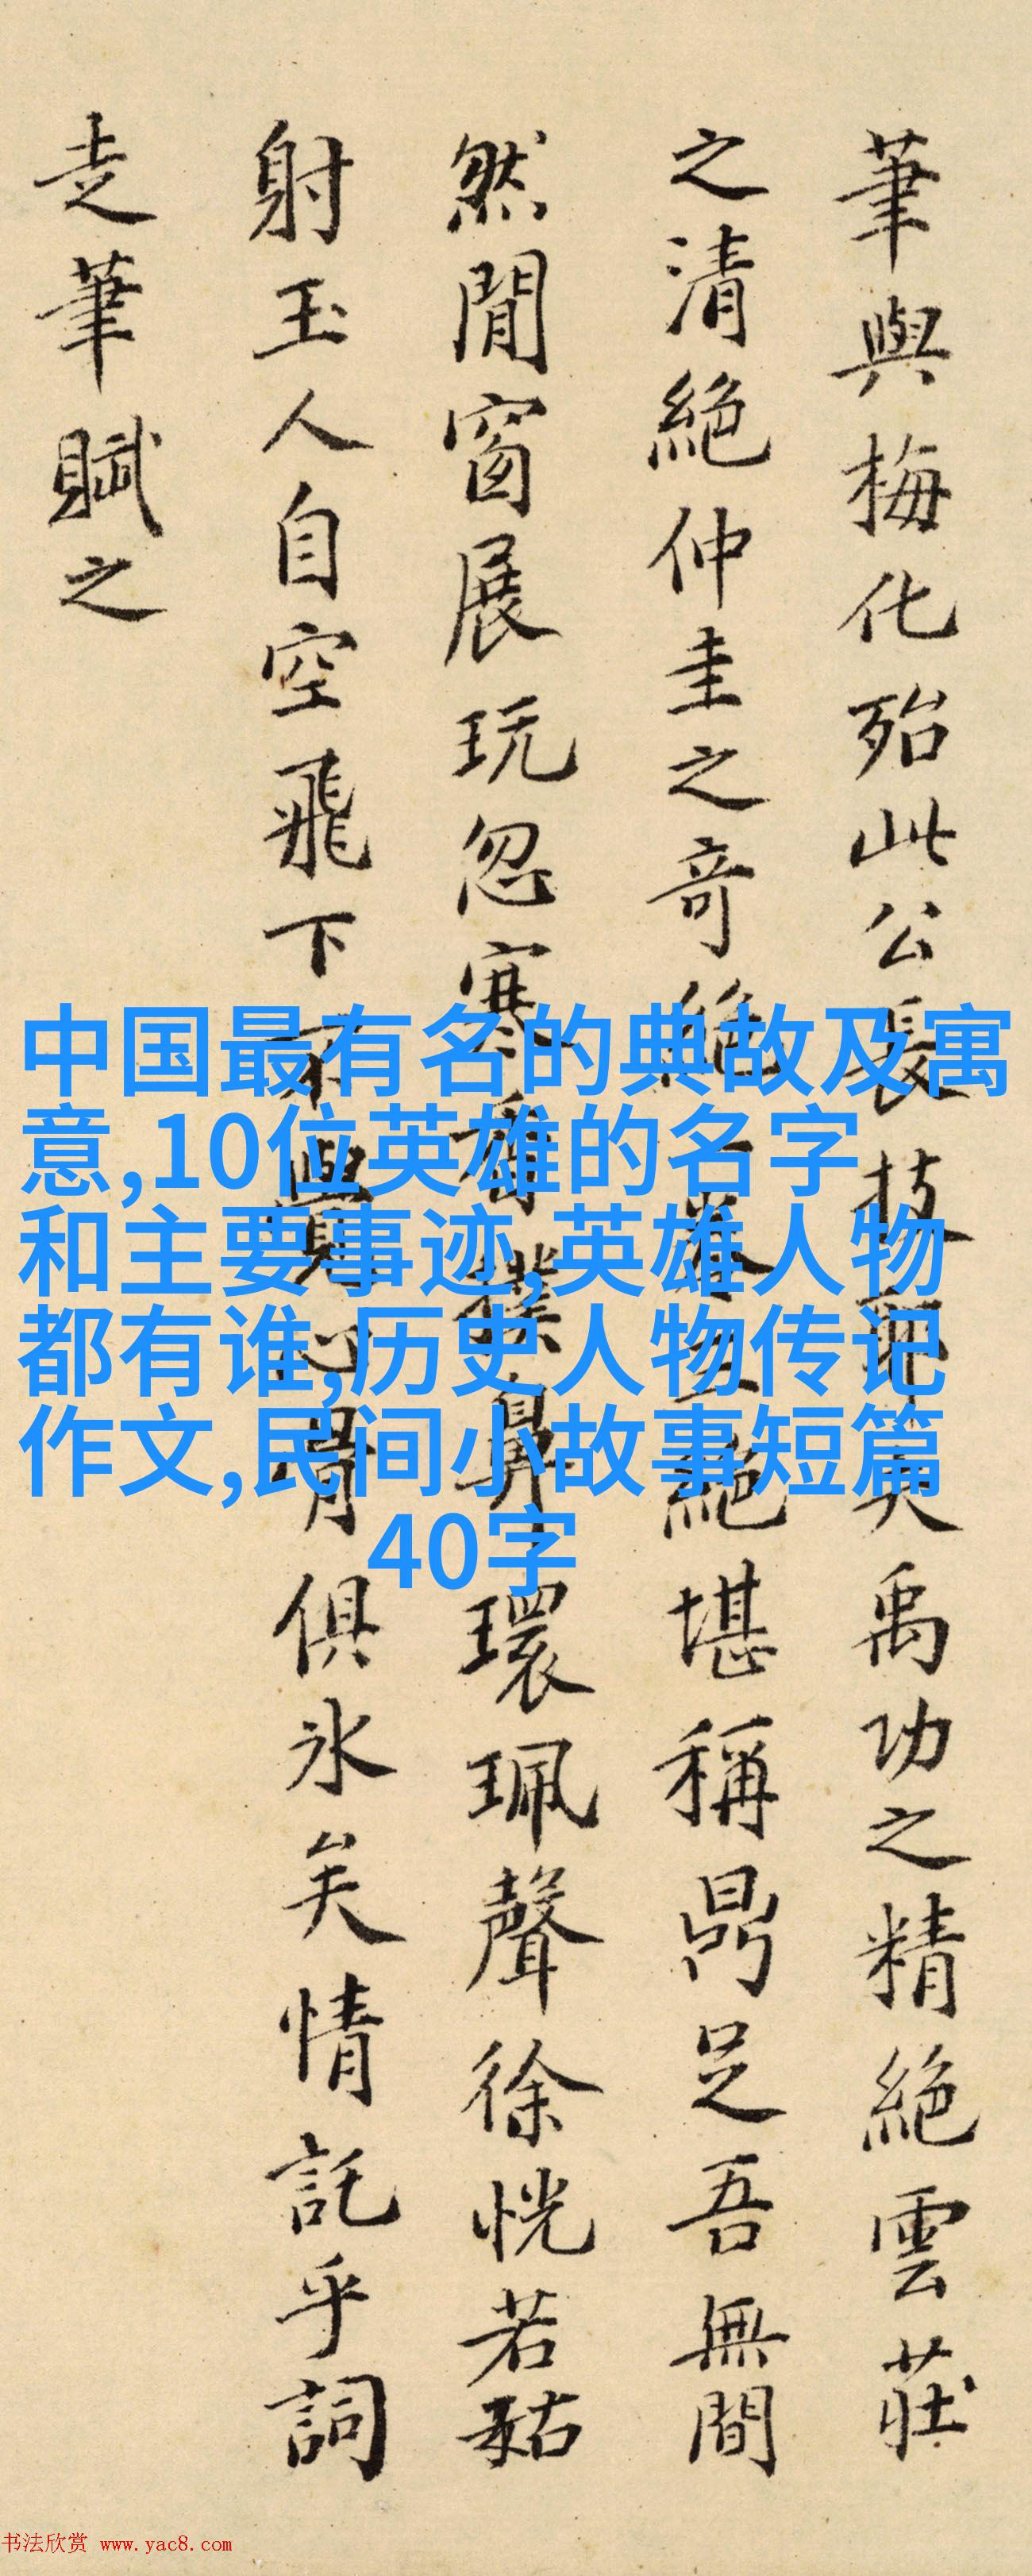 筆與梅化殆此公長技耶夫禹功之精絶雲莊
之清絶仲圭之奇絶一卷三絶堪稱鼎足吾無間
然閒窗展玩忽寒香撲鼻環珮聲徐恍若
射玉人自空飛下不覺心骨俱氷矣情託乎詞
走筆賦之
中国最有名的典故及寓
意,10位英雄的名字
和主要事迹,英雄人物
都有谁,历史人物传记
作文,民间小故事短篇
40字
书法欣赏 www.yac8.com